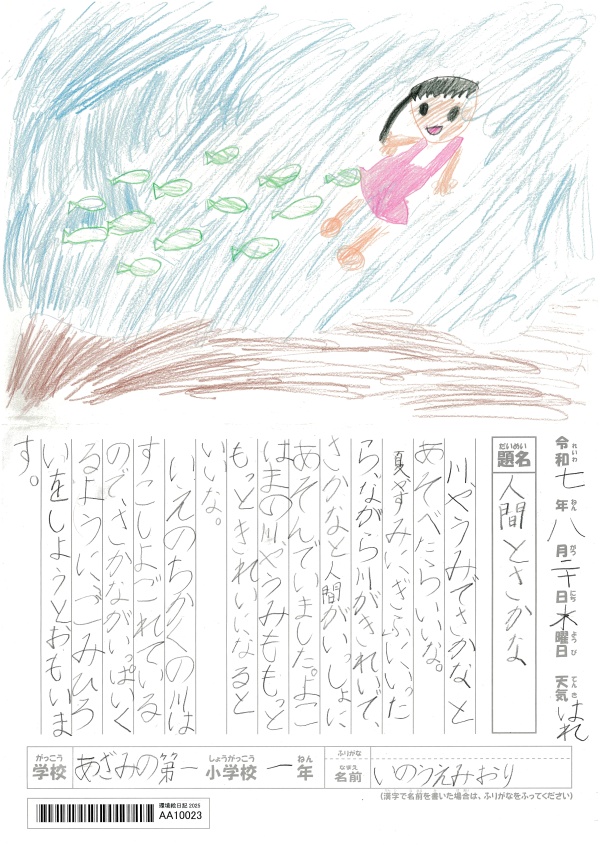 令和七年八月二十日木曜日 天気はれ
れいわ ねん がつ にち ようび てんき
だいめい
題名 人間とさかな
川やうみでさかなと
あそべたらいいな。
夏やすみに、ぎふにいった
ら、ながら川がきれいで、
さかなと人間がいっしょに
あそんでいました。よこ
はまの川やうみももっと
もっときれいになると
いいな。
いえのちかくの川は
すこしよごれている
ので、さかながいっぱいく
るように、ごみひろ
いをしようとおもいま
す。
がっこう しょうがっこう ねん
学校 あざみの第一 小学校 一年
ふりがな
なまえ
名前 いのうえみおり
(漢字で名前を書いた場合は、ふりがなをふってください)
環境絵日記 2025
AA10023